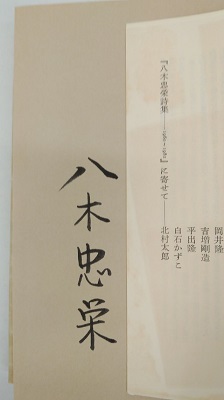 『八木忠栄詩集――1962〜1982』に寄せて――
岡井隆
吉増剛造
平出隆
白石かずこ
北村太郎
八木忠栄